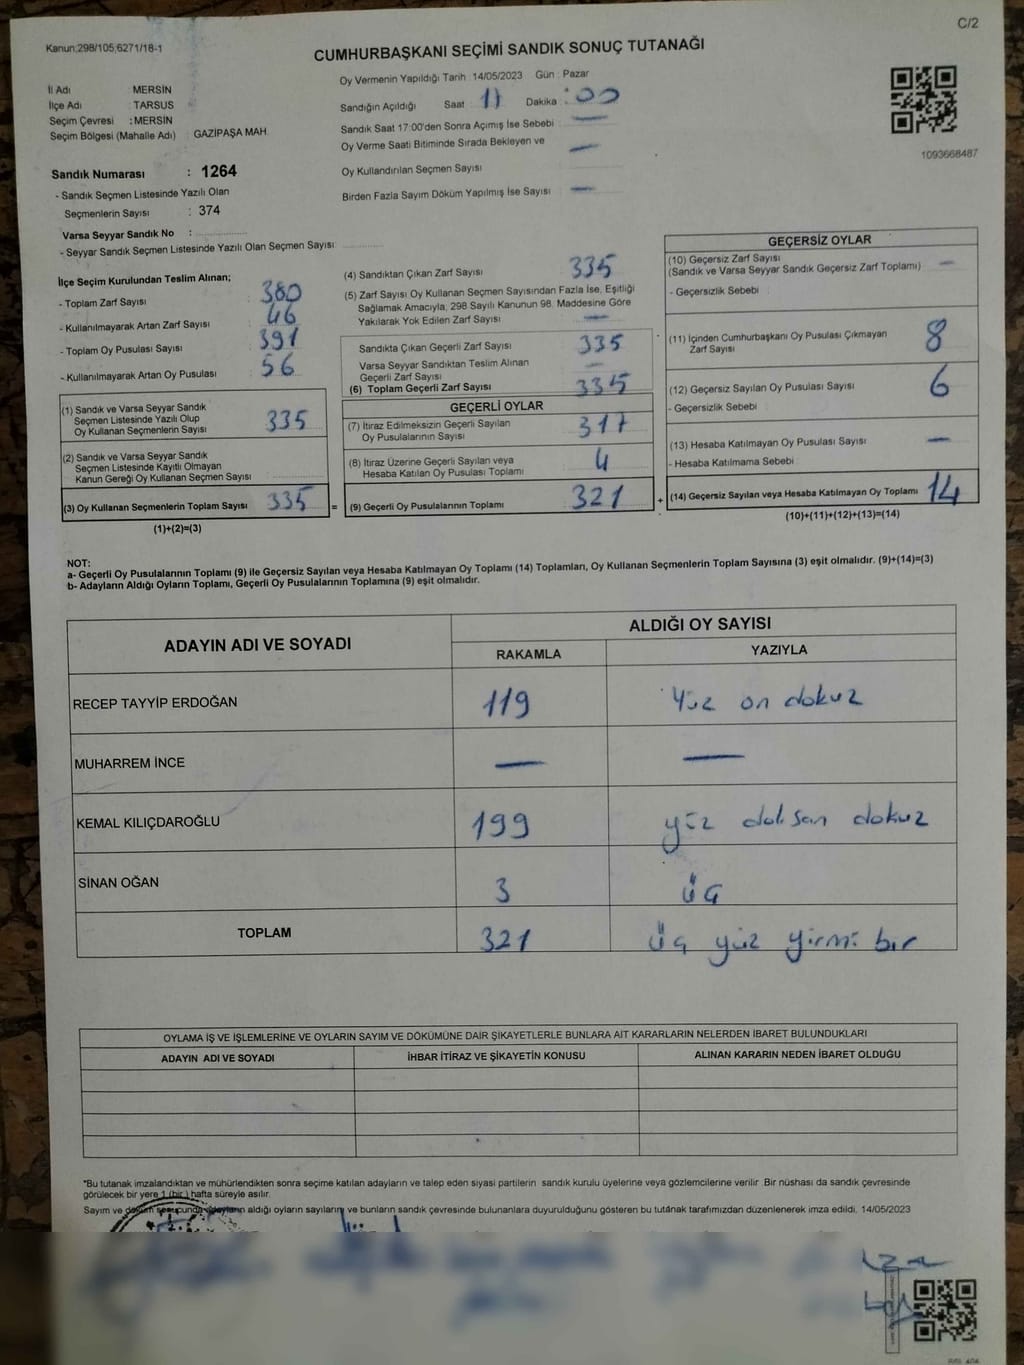 C/2
Kanun:298/105;6271/18-1
CUMHURBAŞKANI SEÇİMİ SANDIK SONUÇ TUTANAĞI
İl Adı : MERSİN
İlçe Adı : TARSUS
Seçim Çevresi : MERSİN
Seçim Bölgesi (Mahalle Adı) : GAZİPAŞA MAH.
Sandık Numarası : 1264
- Sandık Seçmen Listesinde Yazılı Olan
Seçmenlerin Sayısı : 374
Varsa Seyyar Sandık No :
- Seyyar Sandık Seçmen Listesinde Yazılı Olan Seçmen Sayısı:
Oy Vermenin Yapıldığı Tarih : 14/05/2023 Gün : Pazar
Sandığın Açıldığı Saat 17 Dakika : 00
Sandık Saat 17:00'den Sonra Açımış İse Sebebi : —
Oy Verme Saati Bitiminde Sırada Bekleyen ve
Oy Kullandırılan Seçmen Sayısı —
Birden Fazla Sayım Döküm Yapılmış İse Sayısı —
1093668487
İlçe Seçim Kurulundan Teslim Alınan;
- Toplam Zarf Sayısı 380
- Kullanılmayarak Artan Zarf Sayısı 46
- Toplam Oy Pusulası Sayısı 391
- Kullanılmayarak Artan Oy Pusulası 56
(1) Sandık ve Varsa Seyyar Sandık
Seçmen Listesinde Yazılı Olup
Oy Kullanan Seçmenlerin Sayısı 335
(2) Sandık ve Varsa Seyyar Sandık
Seçmen Listesinde Kayıtlı Olmayan
Kanun Gereği Oy Kullanan Seçmen Sayısı
(3) Oy Kullanan Seçmenlerin Toplam Sayısı 335 =
(1)+(2)=(3)
(4) Sandıktan Çıkan Zarf Sayısı 335
(5) Zarf Sayısı Oy Kullanan Seçmen Sayısından Fazla İse, Eşitliği
Sağlamak Amacıyla, 298 Sayılı Kanunun 98. Maddesine Göre
Yakılarak Yok Edilen Zarf Sayısı —
Sandıkta Çıkan Geçerli Zarf Sayısı 335
Varsa Seyyar Sandıktan Teslim Alınan
Geçerli Zarf Sayısı —
(6) Toplam Geçerli Zarf Sayısı 335
GEÇERLİ OYLAR
(7) İtiraz Edilmeksizin Geçerli Sayılan
Oy Pusulalarının Sayısı 317
(8) İtiraz Üzerine Geçerli Sayılan veya
Hesaba Katılan Oy Pusulası Toplamı 4
(9) Geçerli Oy Pusulalarının Toplamı 321 +
GEÇERSİZ OYLAR
(10) Geçersiz Zarf Sayısı
(Sandık ve Varsa Seyyar Sandık Geçersiz Zarf Toplamı) —
- Geçersizlik Sebebi :
(11) İçinden Cumhurbaşkanı Oy Pusulası Çıkmayan
Zarf Sayısı 8
(12) Geçersiz Sayılan Oy Pusulası Sayısı 6
- Geçersizlik Sebebi :
(13) Hesaba Katılmayan Oy Pusulası Sayısı —
- Hesaba Katılmama Sebebi :
(14) Geçersiz Sayılan veya Hesaba Katılmayan Oy Toplamı 14
(10)+(11)+(12)+(13)=(14)
NOT:
a- Geçerli Oy Pusulalarının Toplamı (9) ile Geçersiz Sayılan veya Hesaba Katılmayan Oy Toplamı (14) Toplamları, Oy Kullanan Seçmenlerin Toplam Sayısına (3) eşit olmalıdır. (9)+(14)=(3)
b- Adayların Aldığı Oyların Toplamı, Geçerli Oy Pusulalarının Toplamına (9) eşit olmalıdır.
ADAYIN ADI VE SOYADI ALDIĞI OY SAYISI
RAKAMLA YAZIYLA
RECEP TAYYİP ERDOĞAN 119 Yüz on dokuz
MUHARREM İNCE — —
KEMAL KILIÇDAROĞLU 199 yüz doksan dokuz
SİNAN OĞAN 3 üç
TOPLAM 321 üç yüz yirmi bir
OYLAMA İŞ VE İŞLEMLERİNE VE OYLARIN SAYIM VE DÖKÜMÜNE DAİR ŞİKAYETLERLE BUNLARA AİT KARARLARIN NELERDEN İBARET BULUNDUKLARI
ADAYIN ADI VE SOYADI İHBAR İTİRAZ VE ŞİKAYETİN KONUSU ALINAN KARARIN NEDEN İBARET OLDUĞU
*Bu tutanak imzalandıktan ve mühürlendikten sonra seçime katılan adayların ve talep eden siyasi partilerin sandık kurulu üyelerine veya gözlemcilerine verilir. Bir nüshası da sandık çevresinde
görülecek bir yere 1 (bir) hafta süreyle asılır.
Sayım ve döküm sonucunda adayların aldığı oyların sayılarını ve bunların sandık çevresinde bulunanlara duyurulduğunu gösteren bu tutanak tarafımızdan düzenlenerek imza edildi. 14/05/2023